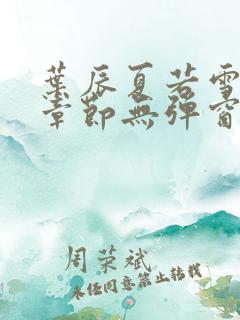 葉辰夏若雪
章節無彈窗
周荣斌
未经同意禁止转载